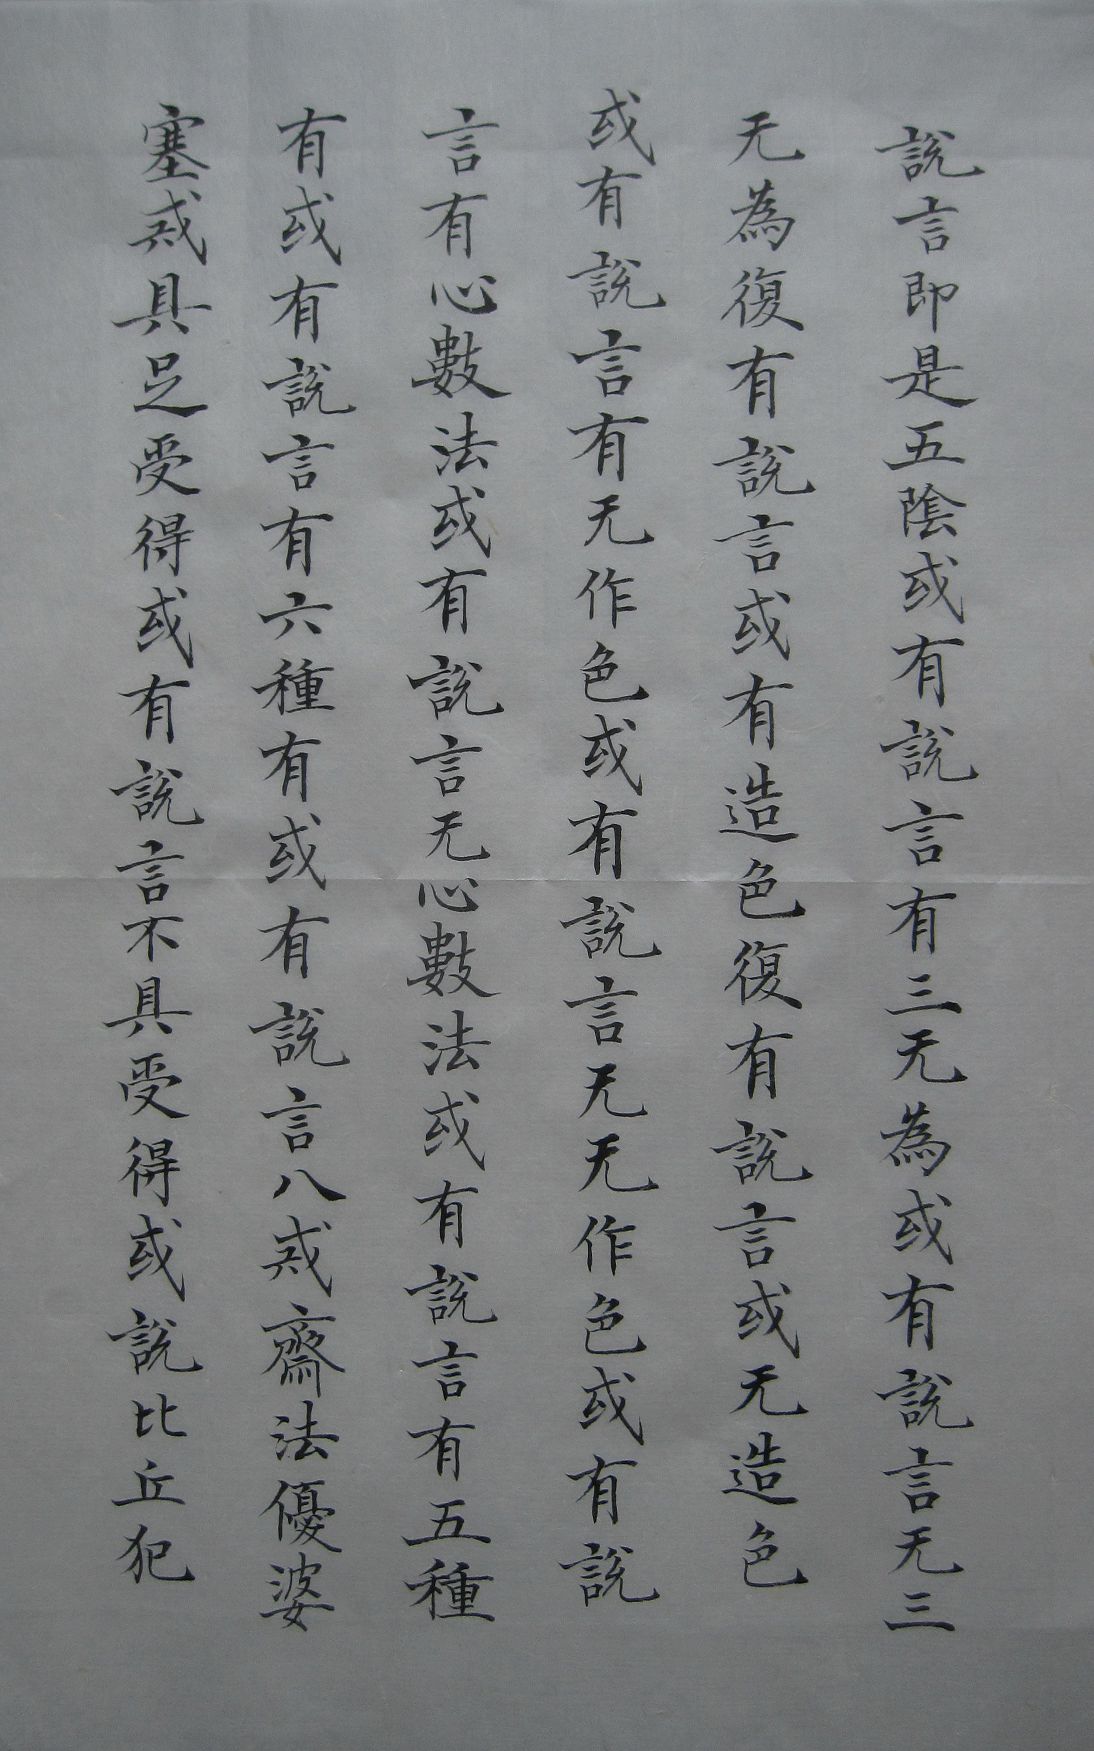 說言即是五陰或有說言有三无為或有說言无三
无為復有說言或有造色復有說言或无造色
或有說言有无作色或有說言无无作色或有說
言有心數法或有說言无心數法或有說言有五種
有或有說言有六種有或有說言八戒齋法優婆
塞戒具足受得或有說言不具受得或說比丘犯